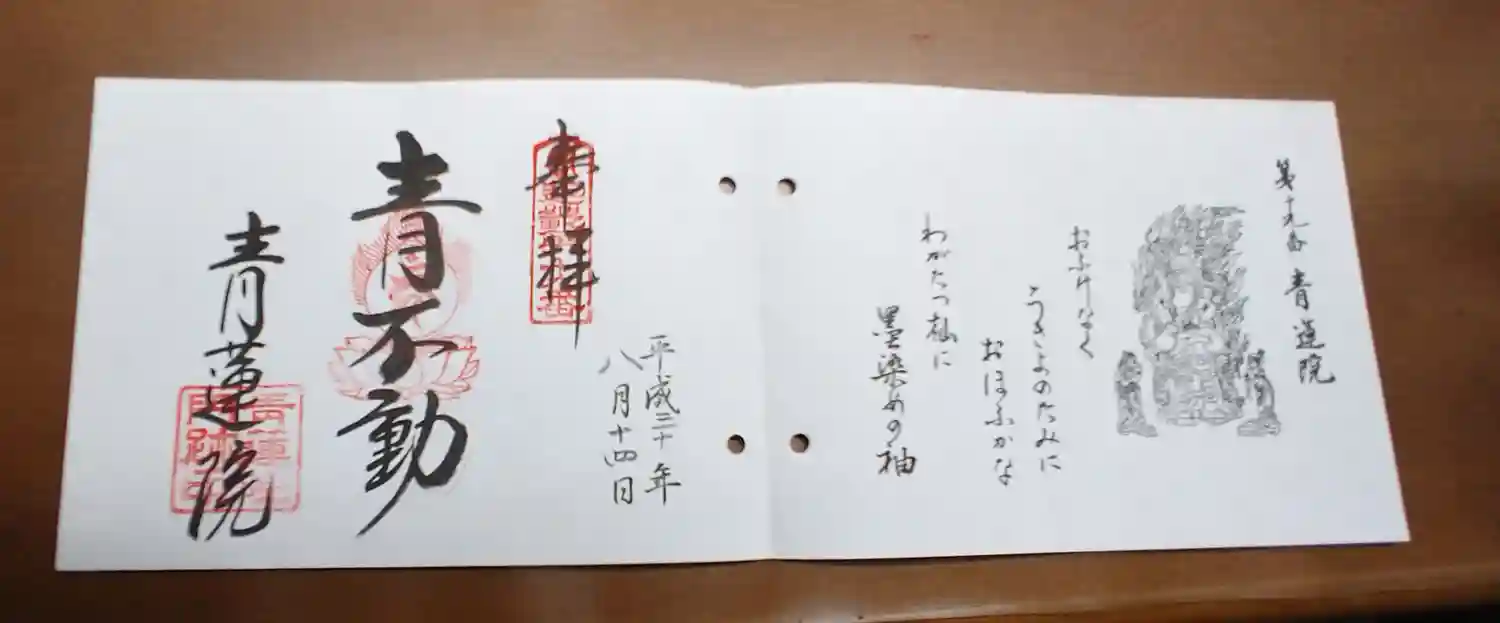 第十九番 青蓮院
おふけなく
うきよのたみに
おほふかな
わがたつ杣に
墨染めの袖
奉拝
平成三十年
八月十四日
青不動
青蓮院
青蓮院
門跡印